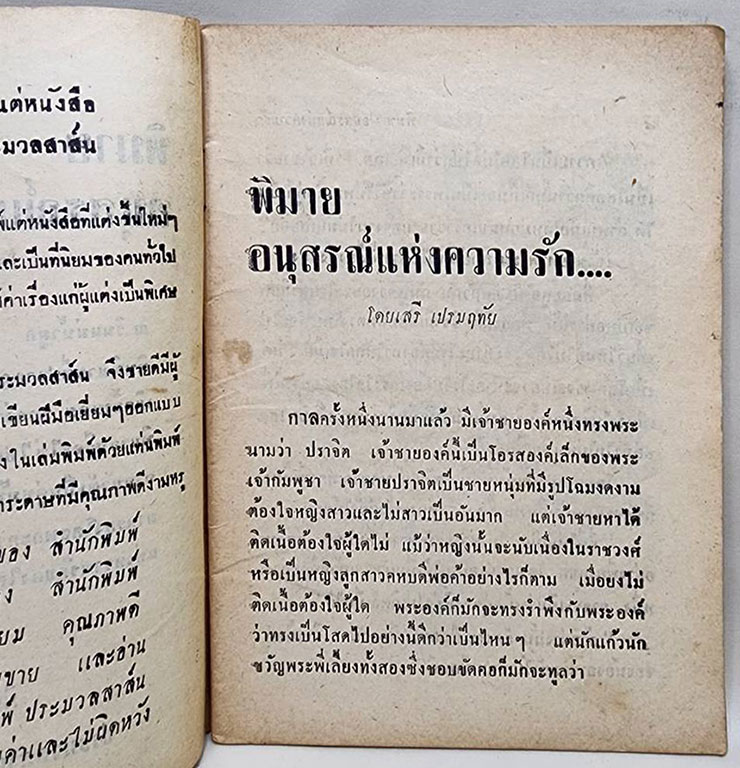 แต่หนังสือ
ระมวลสาส์น
แต่หนังสือที่แต่งขึ้นใหม่ๆ
และเป็นที่นิยมของคนทั่วไป
ค่าเรื่องแก่ผู้แต่งเป็นพิเศษ
ระมวลสาส์น จึงขายดีมีผู้
เขียนฝีมือเยี่ยมๆออกแบบ
ในเล่มพิมพ์ด้วยแท่นพิมพ์
กระดาษที่มีคุณภาพดีงามหรู
ของ สำนักพิมพ์
สำนักพิมพ์
คุณภาพดี
ขาย และอ่าน
ประมวลสาส์น
ค่าและไม่ผิดหวัง
พิมาย
อนุสรณ์แห่งความรัก....
โดยเสรี เปรมฤทัย
กาลครั้งหนึ่งนานมาแล้ว มีเจ้าชายองค์หนึ่งทรงพระ
นามว่า ปราจิต เจ้าชายองค์นี้เป็นโอรสองค์เล็กของพระ
เจ้ากัมพูชา เจ้าชายปราจิตเป็นชายหนุ่มที่มีรูปโฉมงดงาม
ต้องใจหญิงสาวและไม่สาวเป็นอันมาก แต่เจ้าชายหาได้
ติดเนื้อต้องใจผู้ใดไม่ แม้ว่าหญิงนั้นจะนับเนื่องในราชวงศ์
หรือเป็นหญิงลูกสาวคหบดีพ่อค้าอย่างไรก็ตาม เมื่อยงไม่
ติดเนื้อต้องใจผู้ใด พระองค์ก็มักจะทรงรำพึงกับพระองค์
ว่าทรงเป็นโสดไปอย่างนี้ดีกว่าเป็นไหนๆ แต่นักแก้วนัก
ขวัญพระพี่เลี้ยงทั้งสองซึ่งชอบขัดคอก็มักจะทูลว่า